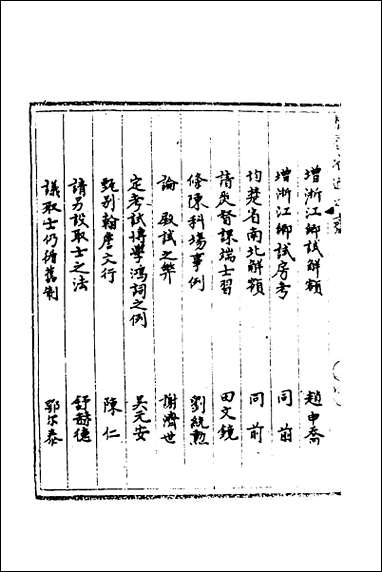 增浙江鄉試解額 趙申喬
增浙江鄉試房考 同前
均楚省南北解額 同前
請英督課端士習 田文鏡
條陳科場事例 劉統勲
論殿試之弊 謝濟世
定考試博學鴻詞之例 吴元安
甄别翰詹文行 陳仁
請另設取士之法 舒赫德
議取士仍循舊制 鄂尔泰